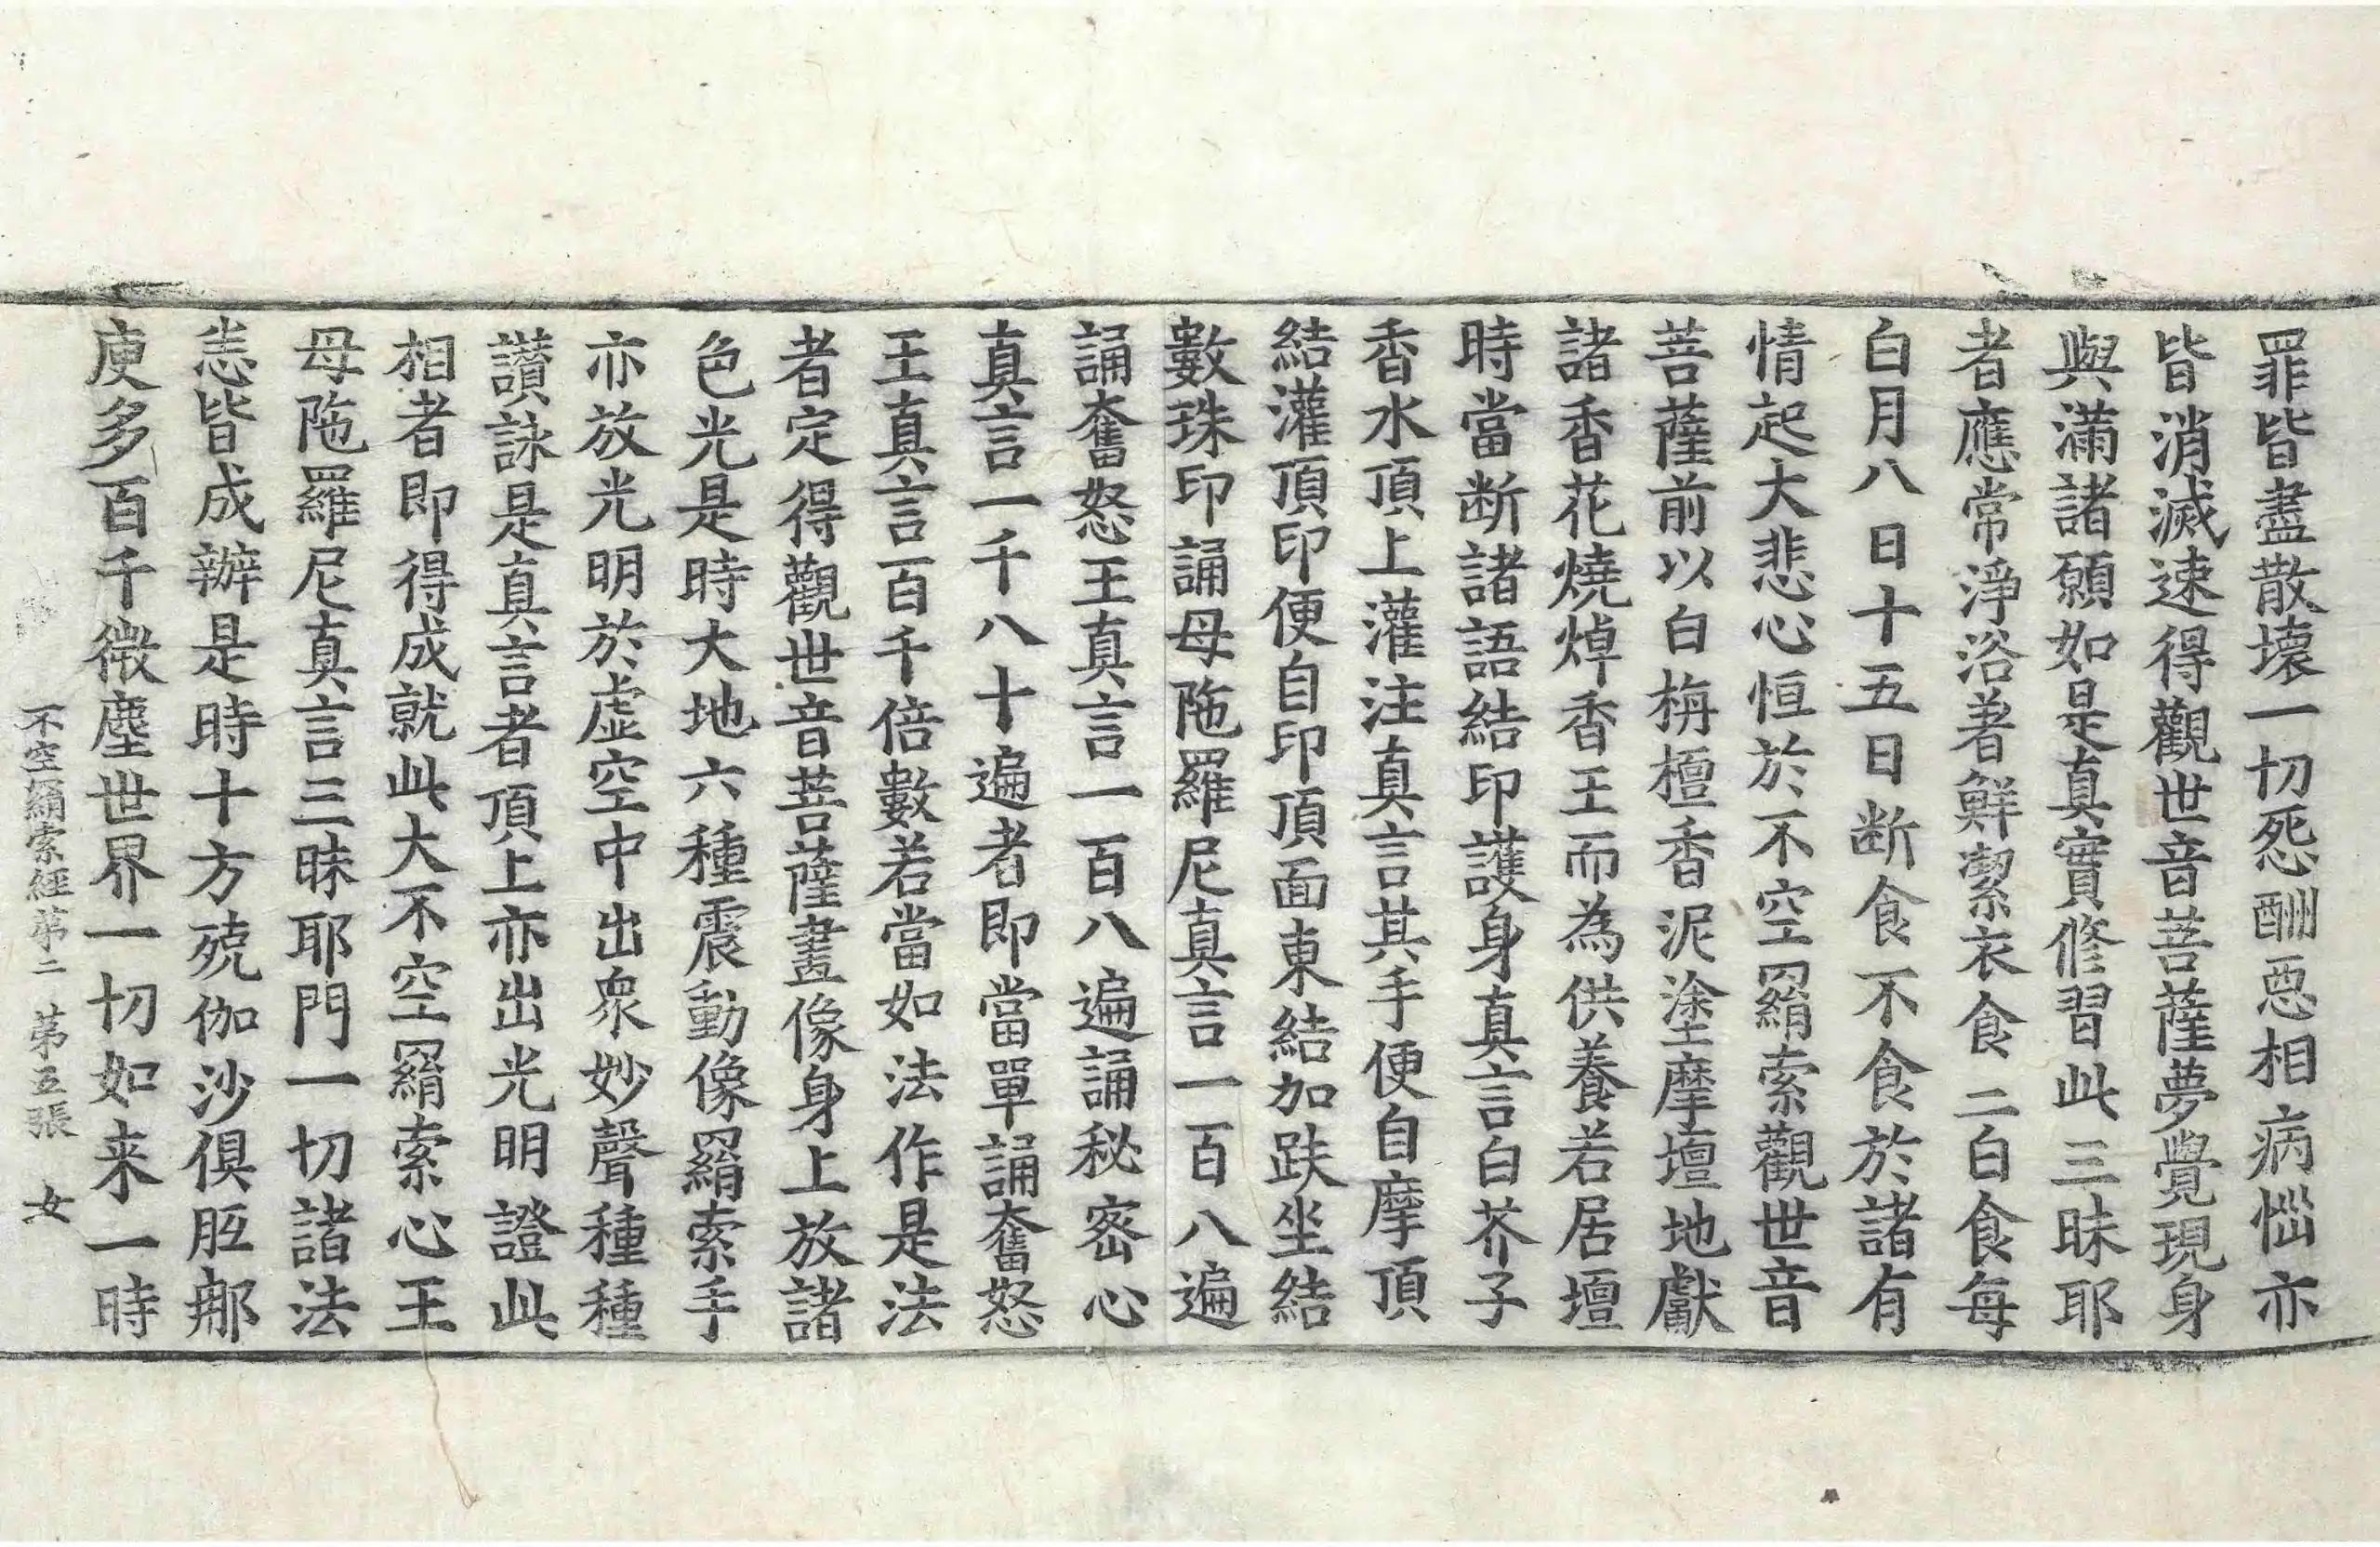 罪皆盡散壞一切惌酬惡相病惱亦
皆消滅速得觀世音菩薩夢覺現身
與滿諸願如是真實修習此三昧耶
者應常淨浴著鮮潔衣食二白食每
白月八日十五日断食不食於諸有
情起大悲心恒於不空羂索觀世音
菩薩前以白栴檀香泥塗摩壇地獻
諸香花燒焯香王而為供養若居壇
時當断諸語結印護身真言白芥子
香水頂上灌注真言其手便自摩頂
結灌頂印便自印頂面東結加趺坐結
數珠印誦母陁羅尼真言一百八遍
誦奮怒王真言一百八遍誦秘密心
真言一千八十遍者即當單誦奮怒
王真言百千倍數若當如法作是法
者定得觀世音菩薩畫像身上放諸
色光是時大地六種震動像羂索手
亦放光明於虛空中出衆妙聲種種
讃詠是真言者頂上亦出光明證此
相者即得成就此大不空羂索心王
母陁羅尼真言三昧耶門一切諸法
悉皆成辦是時十方殑伽沙俱胝𨚗
庾多百千微塵世界一切如来一時
不空羂索經第二 第五張 女